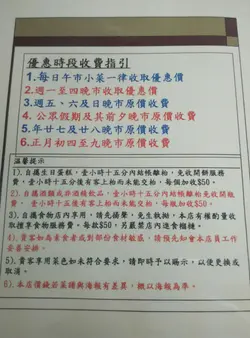 優惠時段收費指引
1.每日午市小菜一律收取優惠價
2.週一至四晚市收取優惠價
3.週五、六及日晚市原價收費
4.公眾假期及其前夕晚市原價收費
5.年廿七及廿八晚市原價收費
6.正月初四至九晚市原價收費
溫馨提示
1). 自攜生日蛋糕,壹小時十五分內結帳離枱,免收開餅服務
費,壹小時十五分後有客上枱而未能交枱,每個加收$50。
2). 自攜酒類或非酒精飲品,壹小時十五分內結帳離枱免收開瓶
費、壹小時十五分後有客上枱而未能交枱,每瓶加收$50。
3). 自攜食物店內享用,請先揚聲,免生軼拗,本店有權酌量收
取攜享食物服務費。每款$50,另嚴禁店內進食榴槤。
4). 貴客如為素食者或對部份食材敏感,請預先知會本店員工作
妥善安排。
5). 貴客享用菜色如未符合要求,請即時予以賜示,以便更換或
取消。
6). 本店價錢若菜譜與海報有差異,概以海報為準。